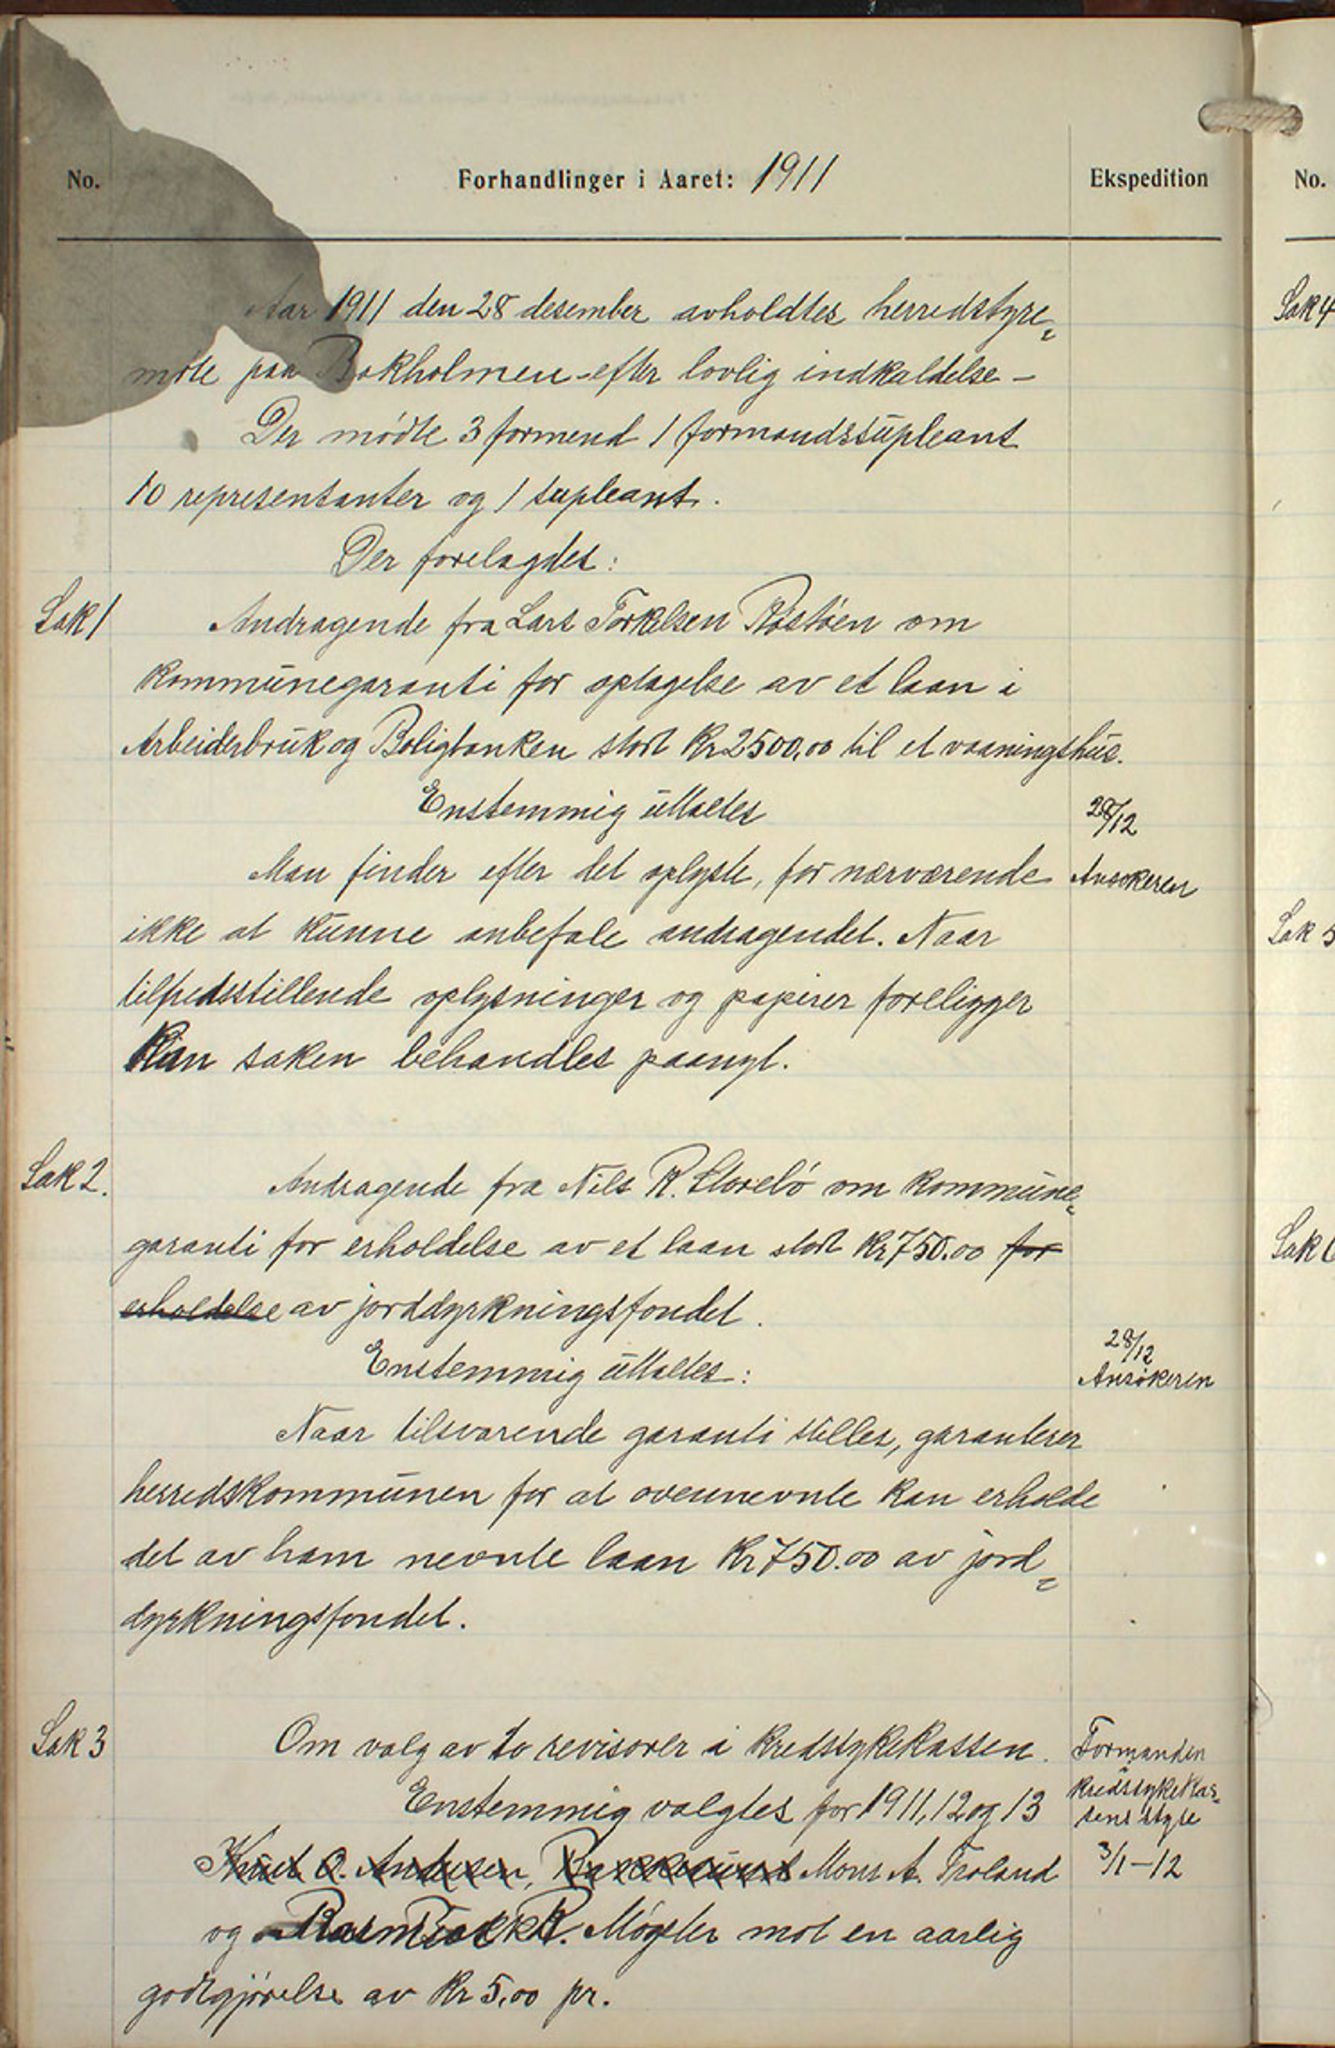 No.
Forhandlinger i Aaret: 1911
Ekspedition
No.
Aar 1911 den 28 desember avholdtes herredstyre-
møte paa Bakholmen - efter lovlig indkaldelse -
Der mødte 3 formend 1 formandssupleant
10 representanter og 1 supleant.
Der forelagdes:
Sak 1
Andragende fra Lars Torkelsen Røstøen om
kommunegaranti for optagelse av et laan i
Arbeiderbruk og Boligbanken stort kr 2500,00 til et vaaningshus.
Enstemmig uttaltes
28/12
Man finder efter det oplyste, for nærværende
Ansøkeren
ikke at kunne anbefale andragendet. Naar
tilfredsstillende oplysninger og papirer foreligger
kan saken behandles paanyt.
Sak 2.
Andragende fra Nils R. Storebø om kommune-
garanti for erholdelse av et laan stort kr 750.00 for
erholdelse av jorddyrkningsfondet.
Enstemmig uttaltes:
28/12
Ansøkeren
Naar tilsvarende garanti stilles, garanterer
herredskommunen for at ovennevnte kan erholde
det av ham nevnte laan kr 750.00 av jord-
dyrkningsfondet.
Sak 3
Om valg av to revisorer i kredsykekassen.
Formanden
i
kredssykekas-
sens styre
3/1-12
Enstemmig valgtes for 1911, 12 og 13
Knut O. Andersen, Mons A. Troland
og R. Møgster mot en aarlig
godtgjørelse av kr 5,00 pr.
Sak 4
Sak 5
Sak 6